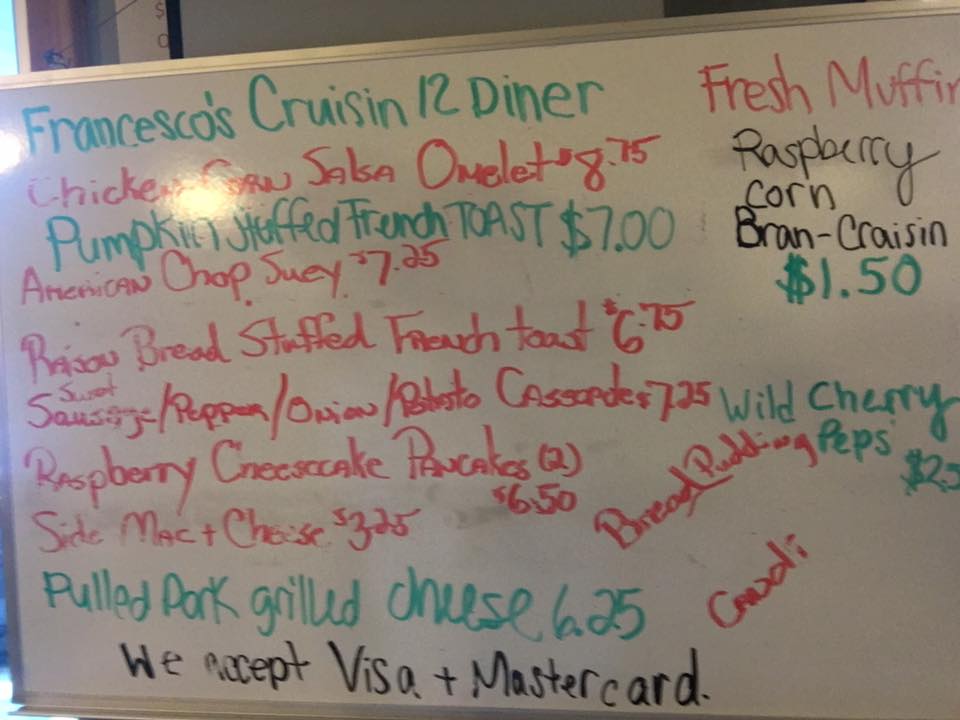 Francesco's Cruisin 12 Diner
Chicken Corn Salsa Omelet $8.75
Pumpkin Stuffed French TOAST $7.00
American Chop Suey $7.25
Raison Bread Stuffed French toast $6.75
Sweet
Sausage/Pepper/Onion/Potato Casserole $7.25
Raspberry Cheesecake Pancakes (2)
$6.50
Side Mac + Cheese $3.25
Pulled Pork grilled cheese 6.25
We accept Visa + Mastercard.
Fresh Muffin
Raspberry
corn
Bran-Craisin
$1.50
Wild Cherry
Peps
Bread Pudding
Canoli